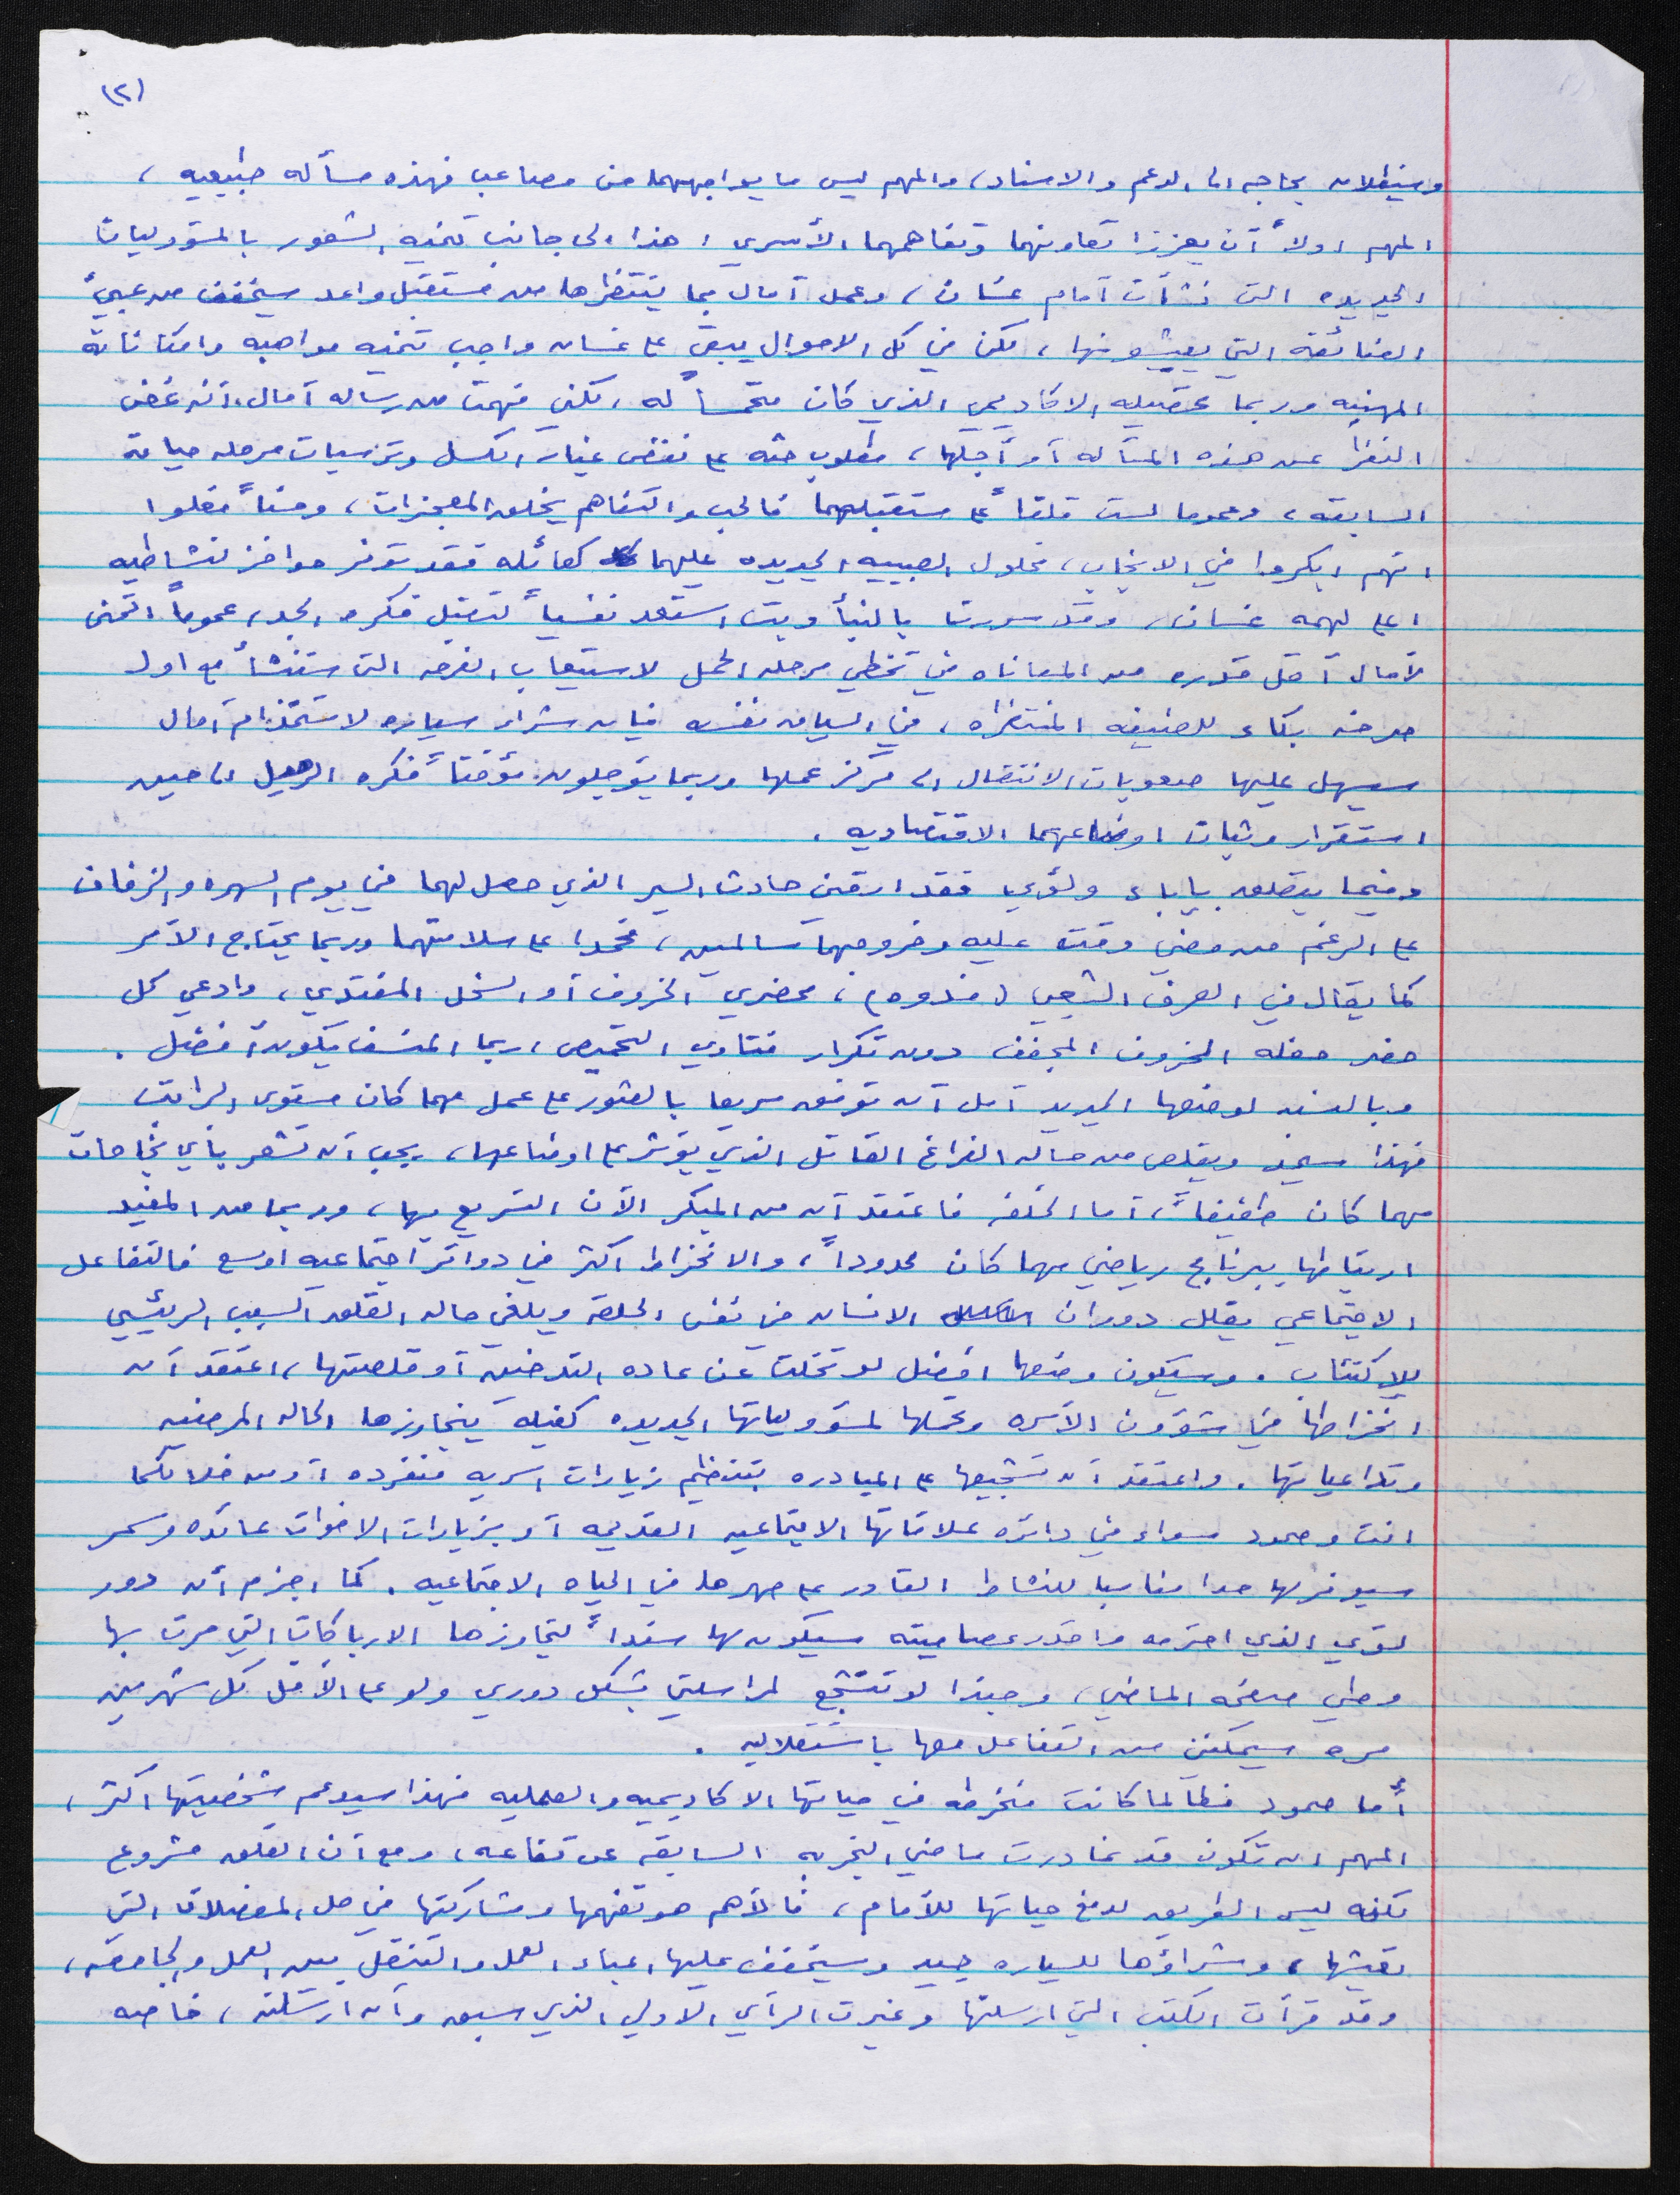 (٢)
وسيظلان بحاجه الى الدعم والاسناد، والمهم ليس ما يواجههما من مصاعب فهذه مسأله طبيعيه ،
المهم اولاً أن يعززا تعاونهما وتفاهمهما الأسري ، هذا الى جانب تنميه الشعور بالمسؤوليات
الجديده التي نشأت أمام غسان ، وعمل آمال بما ينتظرها من مستقبل واعد سيخفف من عبئ
الضائقه التي يعيشونها ، لكن في كل الاحوال يبقى على غسان واجب تنميه مواهبه وامكاناته
المهنيه وربما تحصيله الاكاديمي الذي كان متحمساً له ، لكني فهمت من رساله آمال انه غض
النظر عن هذه المسأله أو أجلها ، مطلوب حثه على نفض غبار الكسل وترسبات مرحله حياته
السابقه ، وعموما لست قلقاً على مستقبلهما فالحب والتفاهم يخلق المعجزات ، وحسناً فعلوا
انهم ابكروا في الانجاب ، فحلول الصبيه الجديده عليهما كعائله فقد توفر حوافز تنشاطيه
اعلى لهمه غسان ، وقد سررت بالنبأ وبت استعد نفسياً لتقبل فكره الجد ، عموماً اتمنى
لآمال أقل قدره من المعاناه في تخطي مرحله الحمل لاستيعاب الفرحه التي ستنشأ مع اول
صرخه بكاء للضيفه المنتظره ، في السياق نفسه فان شراء سياره لاستخدام آمال
سيسهل عليها صعوبات الانتقال الى مركز عملها وربما يؤجلون مؤقتاً فكره الرحيل الى حين
استقرار وثبات اوضاعهما الاقتصاديه .
وفيما يتعلق بإباء ولؤي فقد ارقني حادث السير الذي حصل لهما في يوم السهره والزفاف
على الرغم من مضي وقت عليه وخروجهما سالمين ، فحمدا على سلامتهما وربما يحتاج الأمر
كما يقال في العرف الشعبي (فدوه) ، محضري الخروف أو السخل المفتدي ، وادعي كل
حضر حفله الخروف المجفف دون تكرار فتاوي التحميص ، ربما المنسف يكون أفضل .
وبالنسبه لوضعها الجديد آمل أن توفق سريعا بالعثور على عمل مهما كان مستوى الراتب
فهذا سيحد ويقلص من حاله الفراغ القاتل الذي يؤثر على اوضاعها ، يجب أن تشعر بأي نجاحات
مهما كان طفيفاً ، أما الخلفه فاعتقد أن من المبكر الآن التسريع بها ، وربما من المفيد
ارتباطها ببرنامج رياضي مهما كان محدوداً ، والانخراط اكثر في دوائر اجتماعيه اوسع فالتفاعل
الاجتماعي يقلل دوران الانسان في نفس الحلقه ويلغي حاله القلق السبب الرئيسي
للاكتئاب . وسيكون وضعها افضل لو تخلت عن عاده التدخين أو قلصتها ، اعتقد أن
انخراطها في شؤون الأسره وتحملها لمسؤولياتها الجديده كفيله بتجاوزها الحاله المرضيه
وتداعياتها . واعتقد أن تشجيعها على المبادره بتنظيم زيارات اسريه منفرده أو من خلالكما
انت وصمود سواء في دائره علاقاتها الاجتماعيه القديمه أو بزيارات الاخوات عائده وسحر
سيوفر لها جوا مناسبا للنشاط القادر على صهرها في الحياه الاجتماعيه . كما اجزم أن دور
لؤي الذي احترمه واقدر عصاميته سيكون لها سنداً لتجاوزها الارباكات التي مرت بها
وطي صفحه الماضي ، وحبذا لو تتشجع لمراسلتي بشكل دوري ولو على الأقل كل شهرين
مره سيمكنني من التفاعل معها باستقلاليه .
أما صمود فطالما كانت منخرطه في حياتها الاكاديميه والعمليه فهذا سيدعم شخصيتها اكثر ،
المهم ان تكون قد غادرت ماضي التجربه السابقه عن قناعه ، ومع أن القلق مشروع
لكنه ليس الطريق لدفع حياتها للأمام ، فالأهم هو تفهمها ومشاركتها في حل المعضلات التي
تعيشها ، وشراؤها للسياره جيد وسيخفف عليها اعباء العمل والتنقل بين العمل والجامعه ،
وقد قرأت الكتب التي ارسلتها وغيرت الرأي الاولي الذي سبق وأن ارسلته ، خاصه